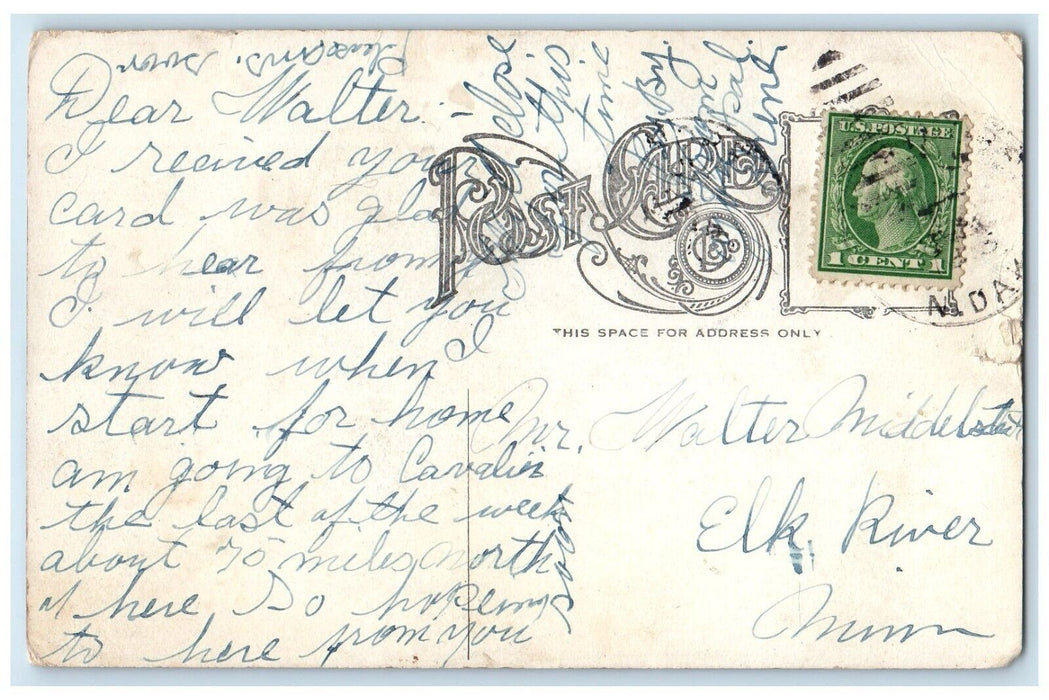 Dear Walter -
I recived your
card was glad
to hear from
I will let you
know when I
start for home
am going to Cavalier
the last of the week
about 75 miles North
of here, So hopeing
to here from you
soon
close
this
time
By
POST CARD
U.S. POSTAGE
1 CENT 1
N. DAK
THIS SPACE FOR ADDRESS ONLY
Mr. Walter
Elk River
Minn